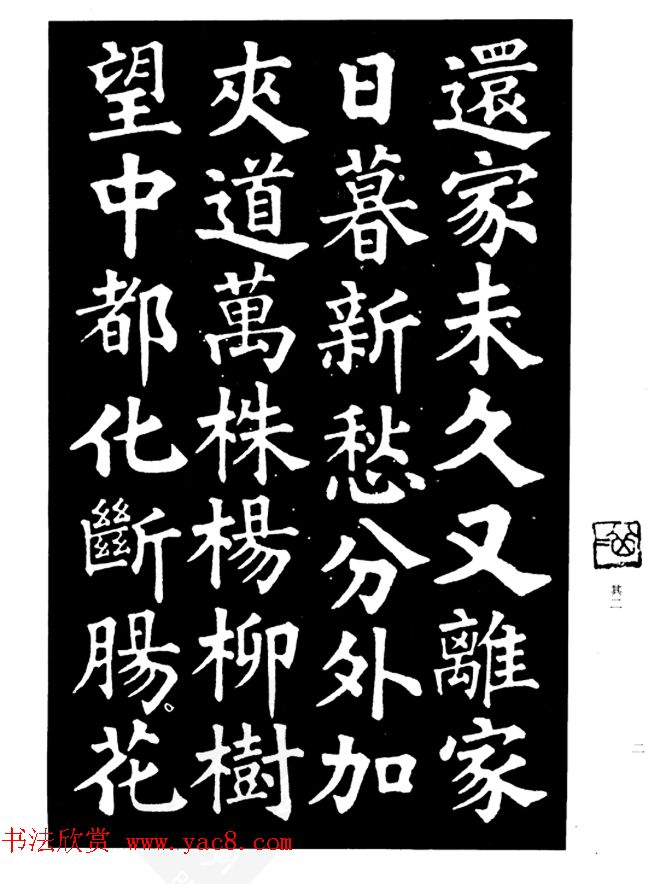 還家未久又離家
日暮新愁分外加
夾道萬株楊柳樹
望中都化斷腸花
其二
二
书法欣赏 www.yac8.com